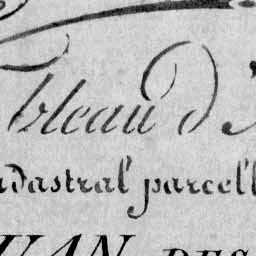 Tableau d'
adastral parcell
UAN DES